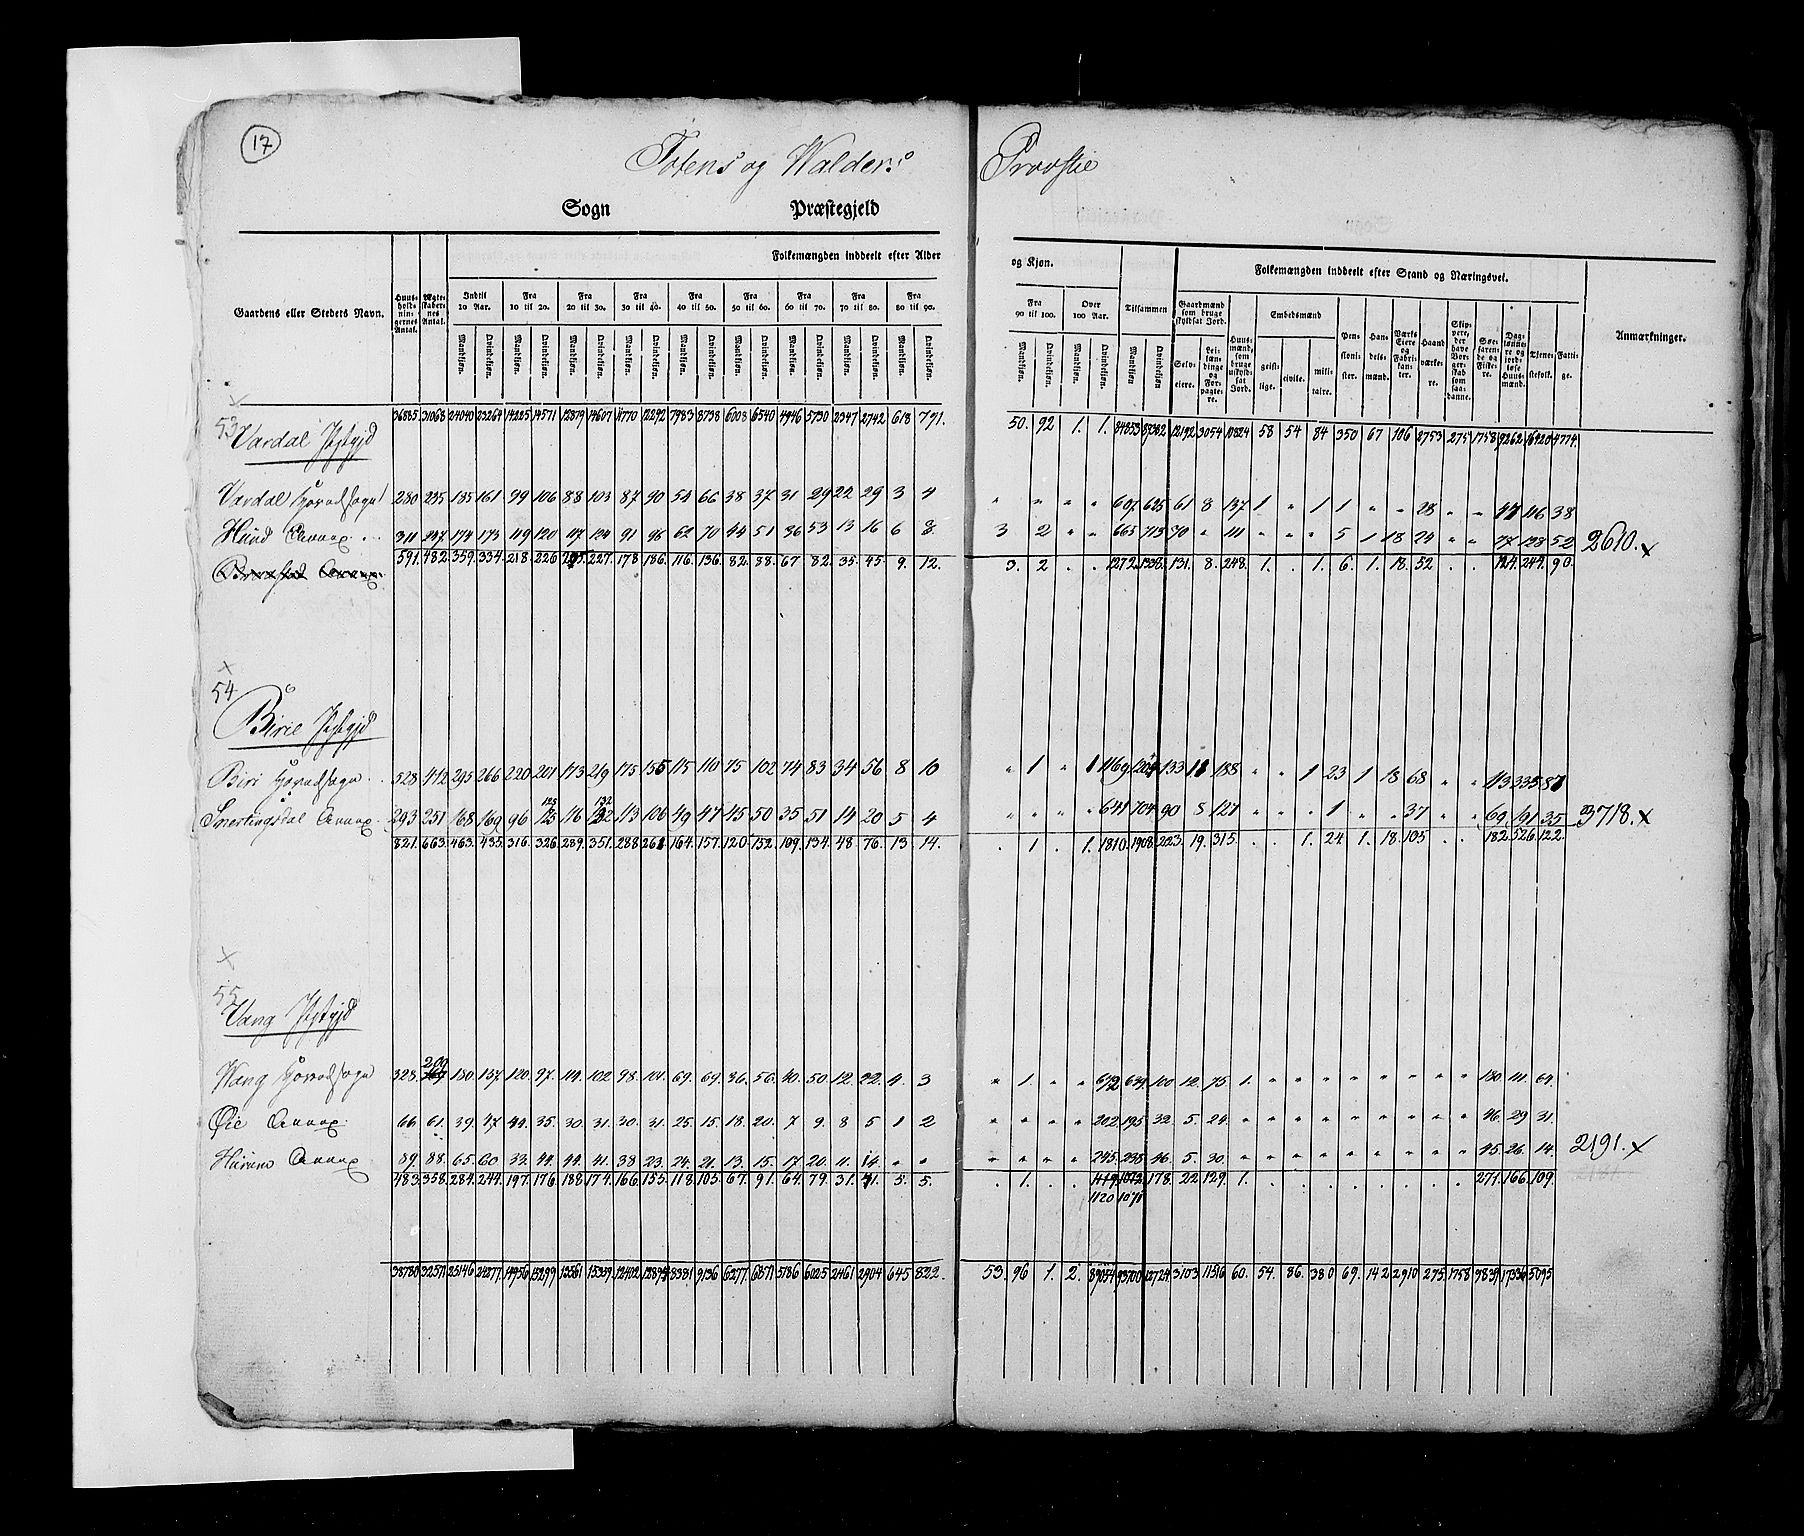 17
Totens og Walders Provstie
Sogn Præstegjeld
Gaardens eller Steders Navn. Huus-holdnin-gernes Antal. Ægte-skaber-nes Antal. Folkemængden inddeelt efter Alder og Kjøn. Folkemængden inddeelt efter Stand og Næringsvei. Anmærkninger.
Indtil 10 Aar. Fra 10 til 20. Fra 20 til 30. Fra 30 til 40. Fra 40 til 50. Fra 50 til 60. Fra 60 til 70. Fra 70 til 80. Fra 80 til 90. Fra 90 til 100. Over 100 Aar. Tilsammen
Gaardmænd som bruge skyldsat Jord. Huusmænd, som bruge uskyldsat Jord. Embedsmænd Pensionister. Handelsmænd. Værks Eiere og Fabrikanter. Haandværkere. Skippere, der have Borgerskab som saadanne. Søefarende og Fiskere. Dagslønnere og jordløse Huusmænd. Tjenestefolk. Fattige.
Selveiere. Leilændinge og Forpagtere. geistlige. civile. militaire.
Mandkjøn. Qvindekjøn. Mandkjøn. Qvindekjøn. Mandkjøn. Qvindekjøn. Mandkjøn. Qvindekjøn. Mandkjøn. Qvindekjøn. Mandkjøn. Qvindekjøn. Mandkjøn. Qvindekjøn. Mandkjøn. Qvindekjøn. Mandkjøn. Qvindekjøn. Mandkjøn. Qvindekjøn. Mandkjøn. Qvindekjøn. Mandkjøn Qvindekjøn
36885 31068 24040 23264 14225 14571 12879 14607 11770 12292 7983 8738 6008 6540 4946 5730 2347 2742 618 791. 50. 92 1. 1. 84853 87382 12192 3054 10824 58 54 84 350 67 106 2753 275 1758 9262 16420 4774.
53
Vardal Pstgjd
Vardal Hovedsogn 280 235 185 161 99 106 88 103 87 90 54 66 38 37 31 29 22 29 3 4 " " " " 607 625 61 8 137 1 " 1 1 " " 28 " " 47 116 38
Hund Annex 311 247 174 173 119 120 117 124 91 96 62 70 44 51 36 53 13 16 6 8. 3 2 " " 665 713 70 " 111 " " " 5 1 18 24 " " 77 128 52 2610. x
Annex 591. 482. 359. 334. 218. 226 205. 227. 178 186. 116. 136. 82. 88. 67 82. 35. 45. 9. 12. 3. 2 . . 1272. 1338. 131. 8. 248. 1. . 1. 6. 1. 18. 52 . . 124. 244. 90.
x
54
Birie Pstgjd
Biri Hovedsogn 528 412 295 266 220 201 173 219 175 155 115 110 75 102 74 83 34 56 8 10 " 1 " 1 1169 1204 133 11 188 " " 1 23 1 18 68 " " 113 335 87
125 132
Snertingdal Annex 293 251 168 169 96 123 116 132 113 106 49 47 45 50 35 51 14 20 5 4 " " " " 641 704 90 8 127 " " " 1 " " 37 " " 69 191 35 3718. x
821. 663. 463. 435. 316. 326 289. 351. 288 261 164. 157. 120. 152. 109. 134. 48. 76. 13. 14. . 1 . 1. 1810. 1908. 223. 19. 315. . . 1. 24. 1. 18. 105. . . 182. 526. 122.
x
55
Vang Pstgjd
200
Wang Hovedsogn 328. 180. 137. 120. 97. 114. 102. 98. 101. 69. 69. 36. 56. 40. 50. 12. 22. 4. 3 " 1. " " 672 639. 100 12. 75. 1. " " " " " " " " 180. 111. 64.
Øie Annex 66 61. 39. 47 44. 35. 30. 31. 30. 31. 25. 15. 18. 20. 7 9. 8 5 1 2 " " " " 202. 195. 32. 5. 24. " " " " " " " " " 46. 29 31.
Hurum Annex 89. 88. 65. 60. 33. 44. 44. 41. 38 23. 24. 21. 13. 15. 17 20. 11. 14. " " " " " " 245. 238. 46. 5. 30. " " " " " " " " " 45. 26. 14. 2191. x
483. 358. 284. 244. 197. 176. 188 174. 166. 155. 118. 105. 67. 91. 64. 79. 31. 41. 5. 5. . 1. . . 1119 1072 178. 22 129. 1. . . . . . . . . 271. 166. 109.
1120 1071
38780 32571 25146 24277 14956 15299 13561 15339 12402 12894 8381 9136 6277. 6871 5186 6025 2461 2904 645 822. 53. 96 1. 2. 89054 93700 12724 3103 11516 60. 54. 86. 380 69. 142 2910 275. 1758 9839 17336 5095